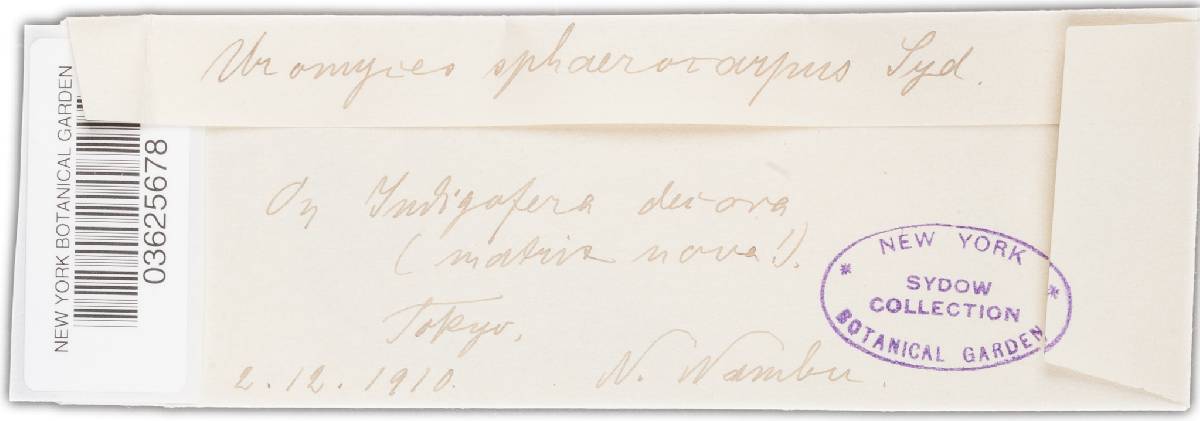 Uromyces sphaerocarpus Syd.
On Indigofera decora
(matrix nova!).
Tokyo.
2. 12. 1910.
N. Nambu.
NEW YORK
SYDOW
COLLECTION
BOTANICAL GARDEN
NEW YORK BOTANICAL GARDEN
03625678